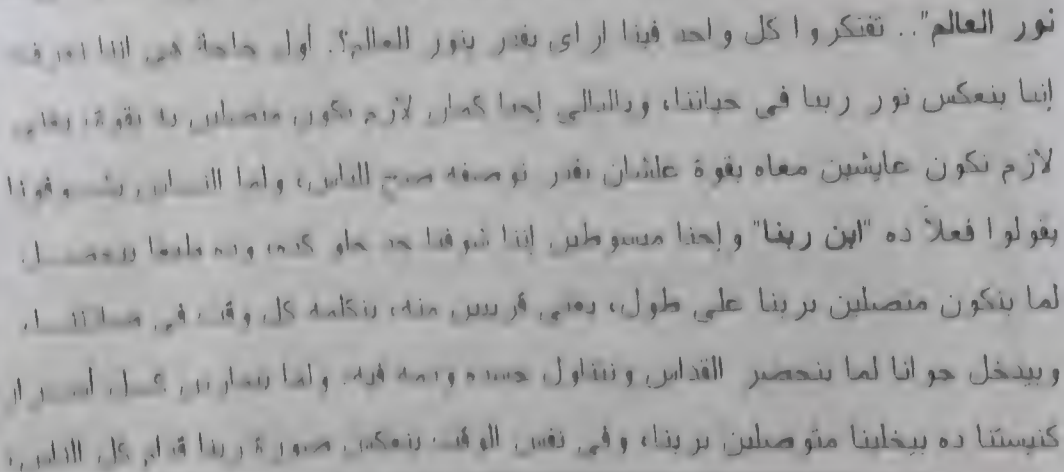 نور العالم".. تفتكروا كل واحد فينا ازاى يقدر ينور للعالم؟. أول حاجة هى اننا نعرف
إننا بنعكس نور ربنا في حياتنا، وبالتالي إحنا كمان لازم نكون متصلين بيه بقوة، يعنى
لازم نكون عايشين معاه بقوة علشان نقدر نوصفه صح للناس، ولما الناس يشوفونا
يقولوا فعلاً ده "ابن ربنا" وإحنا مبسوطين إننا شوفنا حد حلو كده، وده دايما بيحصل
لما بنكون متصلين بربنا على طول، يعنى قريبين منه، بنكلمه كل وقت في حياتنا
وبيدخل جوانا لما بنحضر القداس ونتناول جسده ودمه فيه. ولما بنمارس كل أسرار
كنيستنا ده بيخلينا متوصلين بربنا، وفي نفس الوقت بنعكس صورة ربنا قدام كل الناس